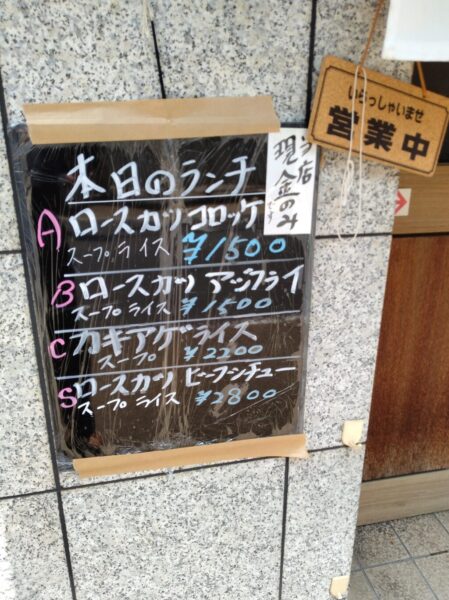 いらっしゃいませ
営業中
当店
現金のみ
です
本日のランチ
A ロースカツ コロッケ
スープ ライス ¥1500
B ロースカツ アジフライ
スープ ライス ¥1500
C カキアゲ ライス
スープ ¥2200
S ロースカツ ビーフシチュー
スープ ライス ¥2800